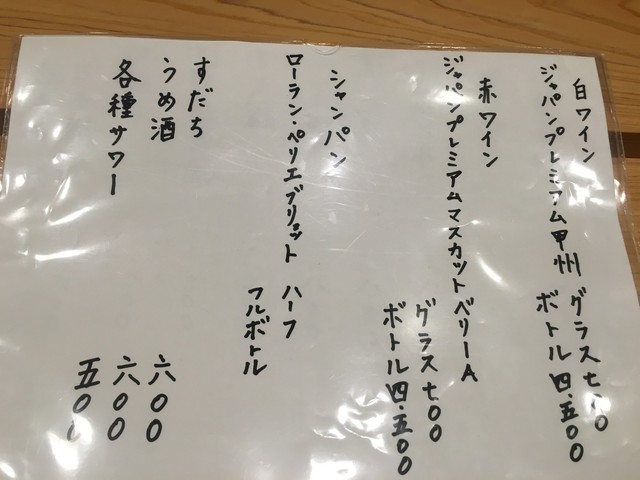 白ワイン
ジャパンプレミアム甲州 グラス 七〇〇
ボトル 四.五〇〇
赤ワイン
ジャパンプレミアムマスカットベリーA
グラス 七〇〇
ボトル 四.五〇〇
シャンパン
ローラン・ペリエブリュット ハーフ
フルボトル
すだち 六〇〇
うめ酒 六〇〇
各種サワー 五〇〇